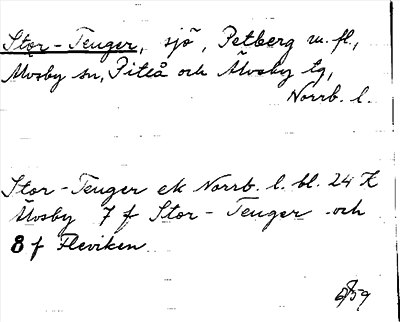 Stor-Teuger, sjö, Petberg m. fl.,
Älvsby sn, Piteå och Älvsby tg,
Norrb. l.
Stor-Teuger ek Norrb. l. bl. 24 K
Älvsby 7 f Stor-Teuger och
8 f Fleviken